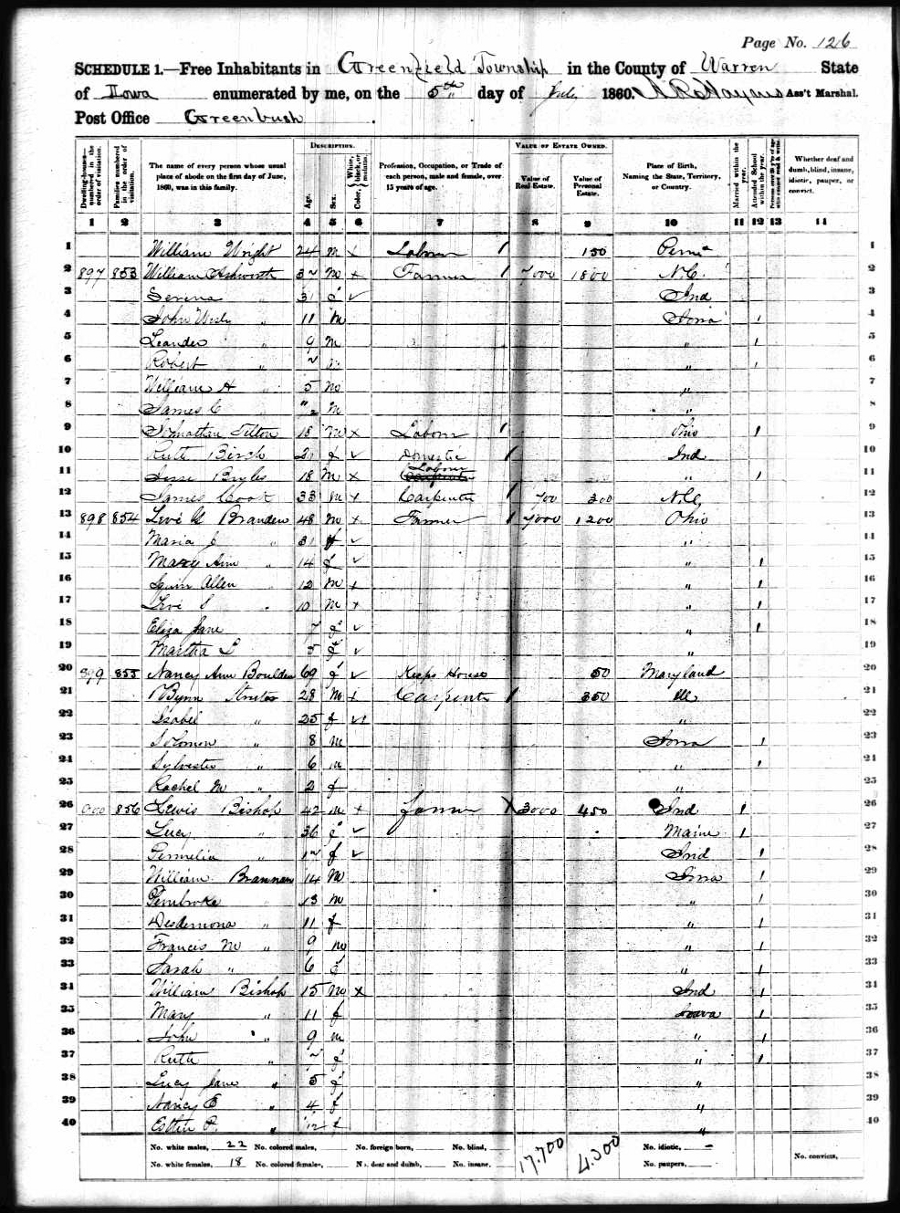 Page No. 126
SCHEDULE 1.—Free Inhabitants in Greenfield Township in the County of Warren State
of Iowa enumerated by me, on the 5th day of 1860. Ass't Marshal.
Post Office Greenbush
DESCRIPTION. VALUE OF ESTATE OWNED.
Dwelling-houses—numbered in the order of visitation. Families numbered in the order of visitation. The name of every person whose usual place of abode on the first day of June, 1860, was in this family. Age. Sex. Color, White, black, or mulatto. Profession, Occupation, or Trade of each person, male and female, over 15 years of age. Value of Real Estate. Value of Personal Estate. Place of Birth, Naming the State, Territory, or Country. Married within the year. Attended School within the year. Whether deaf and dumb, blind, insane, idiotic, pauper, or convict.
1 2 3 4 5 6 7 8 9 10 11 12 13 14
1 William Wright 24 m x Laborer / 150 1
2 897 853 William Ashworth 37 m x Farmer / 7000 1800 N.C. 2
3 31 f ✓ Ind 3
4 John " 11 m Iowa / 4
5 Leander " 9 m " / 5
6 Robert " 7 m " / 6
7 William H " 5 m " 7
8 James C m " 8
9 Johnathan Tilton 18 m x Laborer / Ohio / 9
10 Ruth Birch 21 f ✓ Domestic / Ind 10
11 Jesse Bryles 18 m x Laborer " / 11
12 James Cook 33 m x Carpenter / 700 300 N.C. 12
13 898 854 Levi G Branden 48 m x Farmer / 7000 1200 Ohio 13
14 Maria J " 31 f ✓ " 14
15 Mary Ann " 14 f ✓ " / 15
16 Allen 12 m x " / 16
17 Levi S " 10 m x " / 17
18 Eliza Jane 7 f ✓ " / 18
19 Martha L 5 f ✓ " 19
20 899 855 Nancy Ann Boulden 69 f ✓ Keeps House 50 Maryland 20
21 28 m x Carpenter / 350 Ill 21
22 Isabel " 25 f ✓ " 22
23 Solomon " 8 m Iowa / 23
24 Sylvester " 6 m " / 24
25 Rachel M " 2 f " 25
26 900 856 Lewis Bishop 42 m x Farmer 3000 450 Ind / 26
27 Lucy " 36 f ✓ Maine / 27
28 " 17 f ✓ Ind / 28
29 William Brannan 14 m Iowa / 29
30 Pembroke " 13 m " / 30
31 Desdemona " 11 f " / 31
32 Francis M " 9 m " / 32
33 Sarah " 6 f " / 33
34 William Bishop 15 m x Ind / 34
35 Mary " 11 f Iowa / 35
36 John " 9 m " / 36
37 Ruth " 7 f " / 37
38 Lucy Jane " 5 f " 38
39 Nancy E " 4 f " 39
40 " f " 40
No. white males, 22 No. colored males, No. foreign born, No. blind, 17.700 4.300 No. idiotic, –
No. white females, 18 No. colored females, No. deaf and dumb, No. insane, No. paupers, No. convicts,